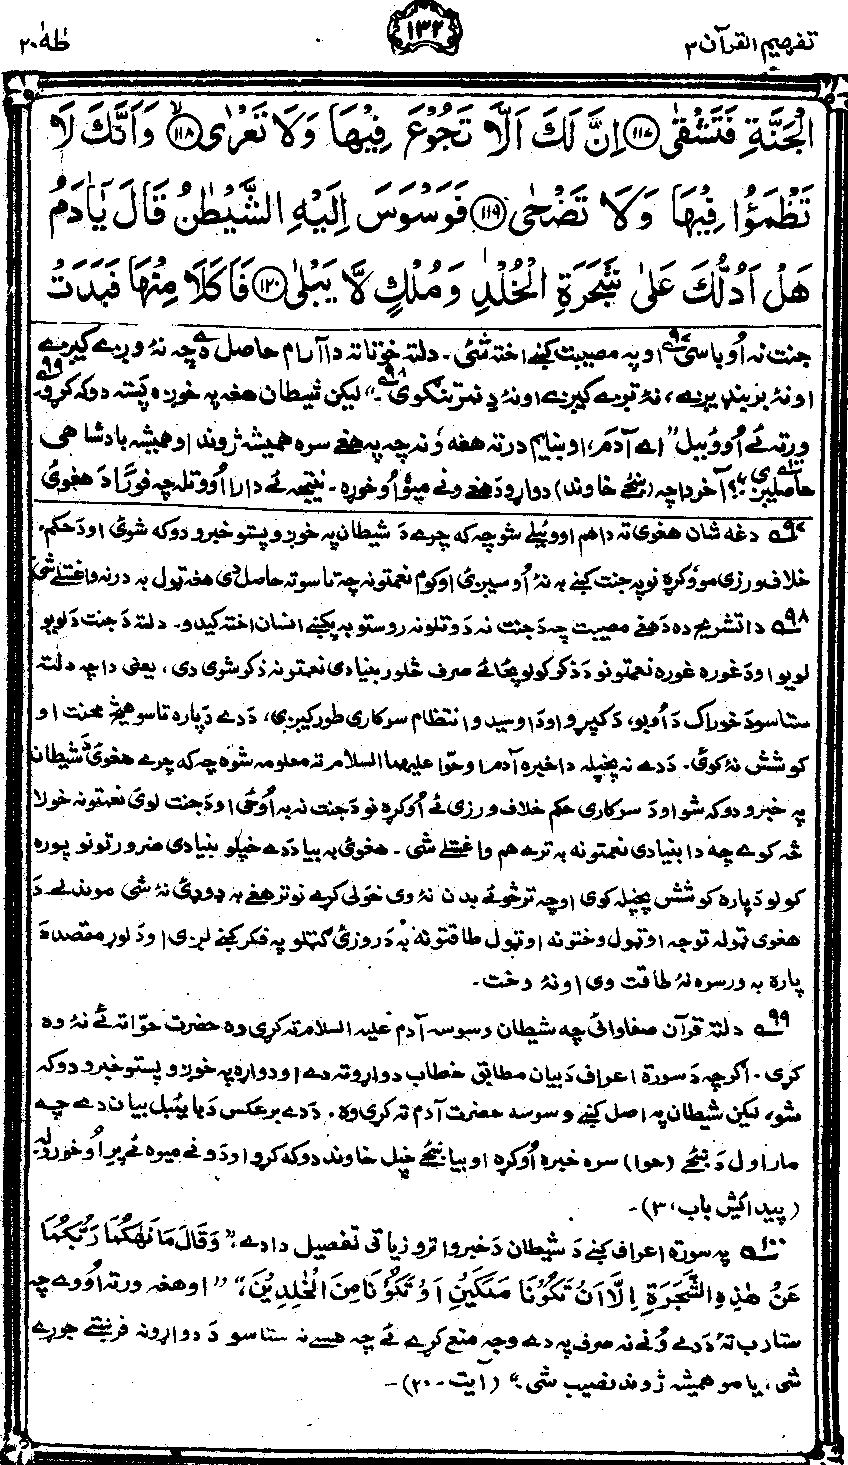 تفهيم القرآن ۳
۱۳۲
طٰهٰ ۲۰
الْجَنَّةِ فَتَشْقٰى ﴿۱۱۷﴾ اِنَّ لَكَ اَلَّا تَجُوْعَ فِيْهَا وَلَا تَعْرٰى ﴿۱۱۸﴾ وَاَنَّكَ لَا
تَظْمَؤُا فِيْهَا وَلَا تَضْحٰى ﴿۱۱۹﴾ فَوَسْوَسَ اِلَيْهِ الشَّيْطٰنُ قَالَ يٰٓاٰدَمُ
هَلْ اَدُلُّكَ عَلٰى شَجَرَةِ الْخُلْدِ وَمُلْكٍ لَّا يَبْلٰى ﴿۱۲۰﴾ فَاَكَلَا مِنْهَا فَبَدَتْ
جنت نه اُوباسی ۹۷ او په مصیبت کښے اخته شئ۔ دلته خو تا ته دا آرام حاصل دے چه نۀ وږے کیږے
او نۀ بربنډیږے، نۀ تږے کیږے او نۀ دِ نمر تنګوی ۹۸۔" لیکن شیطان هغه په خوږه پَسته دوکه کړو ۹۹
ورته ئے اُووئیل "اے آدم، اوښایم درته هغه ونه چه په هغے سره همیشه ژوند او همیشه بادشاهی
حاصلیږی ۱۰۰؟" آخر دا چه (ښځے خاوند) دواړو دَ هغے ونے میوه اُوخوړه۔ نتیجه ئے دا را اُووتله چه فوراً دَ هغوئ
۹۷ دغه شان هغوی ته دا هم اووئیلے شو چه که چرے دَ شیطان په خوږو پستو خبرو دوکه شوئ او دَ حکم
خلاف ورزی مو وکړه نو په جنت کښے به نۀ اُوسیږئ او کوم نعمتونه چه تاسو ته حاصل دی هغه ټول به درنه واخستلے شی
۹۸ دا تشریح ده دَ هغے مصیبت چه دَ جنت نه دَ وتلو نه روستو به پکښے انسان اخته کیدو۔ دلته دَ جنت دَ لویو
لویو او دَ غوره غوره نعمتونو دَ ذکر کولو پځائے صرف څلور بنیادی نعمتونه ذکر شوی دی، یعنی دا چه دلته
ستاسو دَ خوراک دَ اُوبو، دَ کپړو او دَ اوسیدو انتظام سرکاری طور کیږی، دَ دے دَپاره تاسو هیڅ محنت او
کوشش نۀ کوئ۔ دَ دے نه پخپله دا خبره آدم او حوّا علیهما السلام ته معلومه شوه چه که چرے هغوئ دَ شیطان
په خبرو دوکه شو او دَ سرکاری حکم خلاف ورزی ئے اُوکړه نو دَ جنت نه به اُوځی او دَ جنت لوئ نعمتونه خو لا
څه کوے چه دا بنیادی نعمتونه به ترے هم واخستلے شی۔ هغوئ به بیا دَ دے خپلو بنیادی ضرورتونو پوره
کولو دَپاره کوشش پخپله کوی او چه تر څو ئے بدن نۀ وی خولې کړے نو تر هغے به ډوډئ نۀ شی موندلے۔ دَ
هغوی ټوله توجه او ټول وختونه او ټول طاقتونه به دَ روزئ ګټلو په فکر کښے لږی او دَ لوړ مقصد دَ
پاره به ورسره نۀ طاقت وی او نۀ وخت۔
۹۹ دلته قرآن صفا وائی چه شیطان وسوسه آدم علیه السلام ته کړی وه حضرت حوّا ته ئے نۀ وه
کړی۔ اګرچه دَ سورة اعراف دَ بیان مطابق خطاب دواړو ته دے او دواړه په خوږو پستو خبرو دوکه
شو، لیکن شیطان په اصل کښے وسوسه حضرت آدم ته کړی وه۔ دَ دے برعکس دَ بائیبل بیان دے چه
مار اول دَ ښځے (حوا) سره خبره اُوکړه او بیا ښځے خپل خاوند دوکه کړو او دَ ونے میوه ئے پرے اُوخوړله
(پیدائش باب، ۳)۔
۱۰۰ په سورة اعراف کښے دَ شیطان دَ خبرو اترو زیاتی تفصیل دا دے: "وَقَالَ مَا نَهٰكُمَا رَبُّكُمَا
عَنْ هٰذِهِ الشَّجَرَةِ اِلَّآ اَنْ تَكُوْنَا مَلَكَيْنِ اَوْ تَكُوْنَا مِنَ الْخٰلِدِيْنَ،" "او هغه ورته اُووے چه
ستا رب تۀ دَ دے وُنے نه صرف په دے وجه منع کړے ئے چه هسے نه ستاسو دَ دواړو نه فرښتے جوړے
شی، یا مو همیشه ژوند نصیب شی۔" (آیت ۲۰)۔